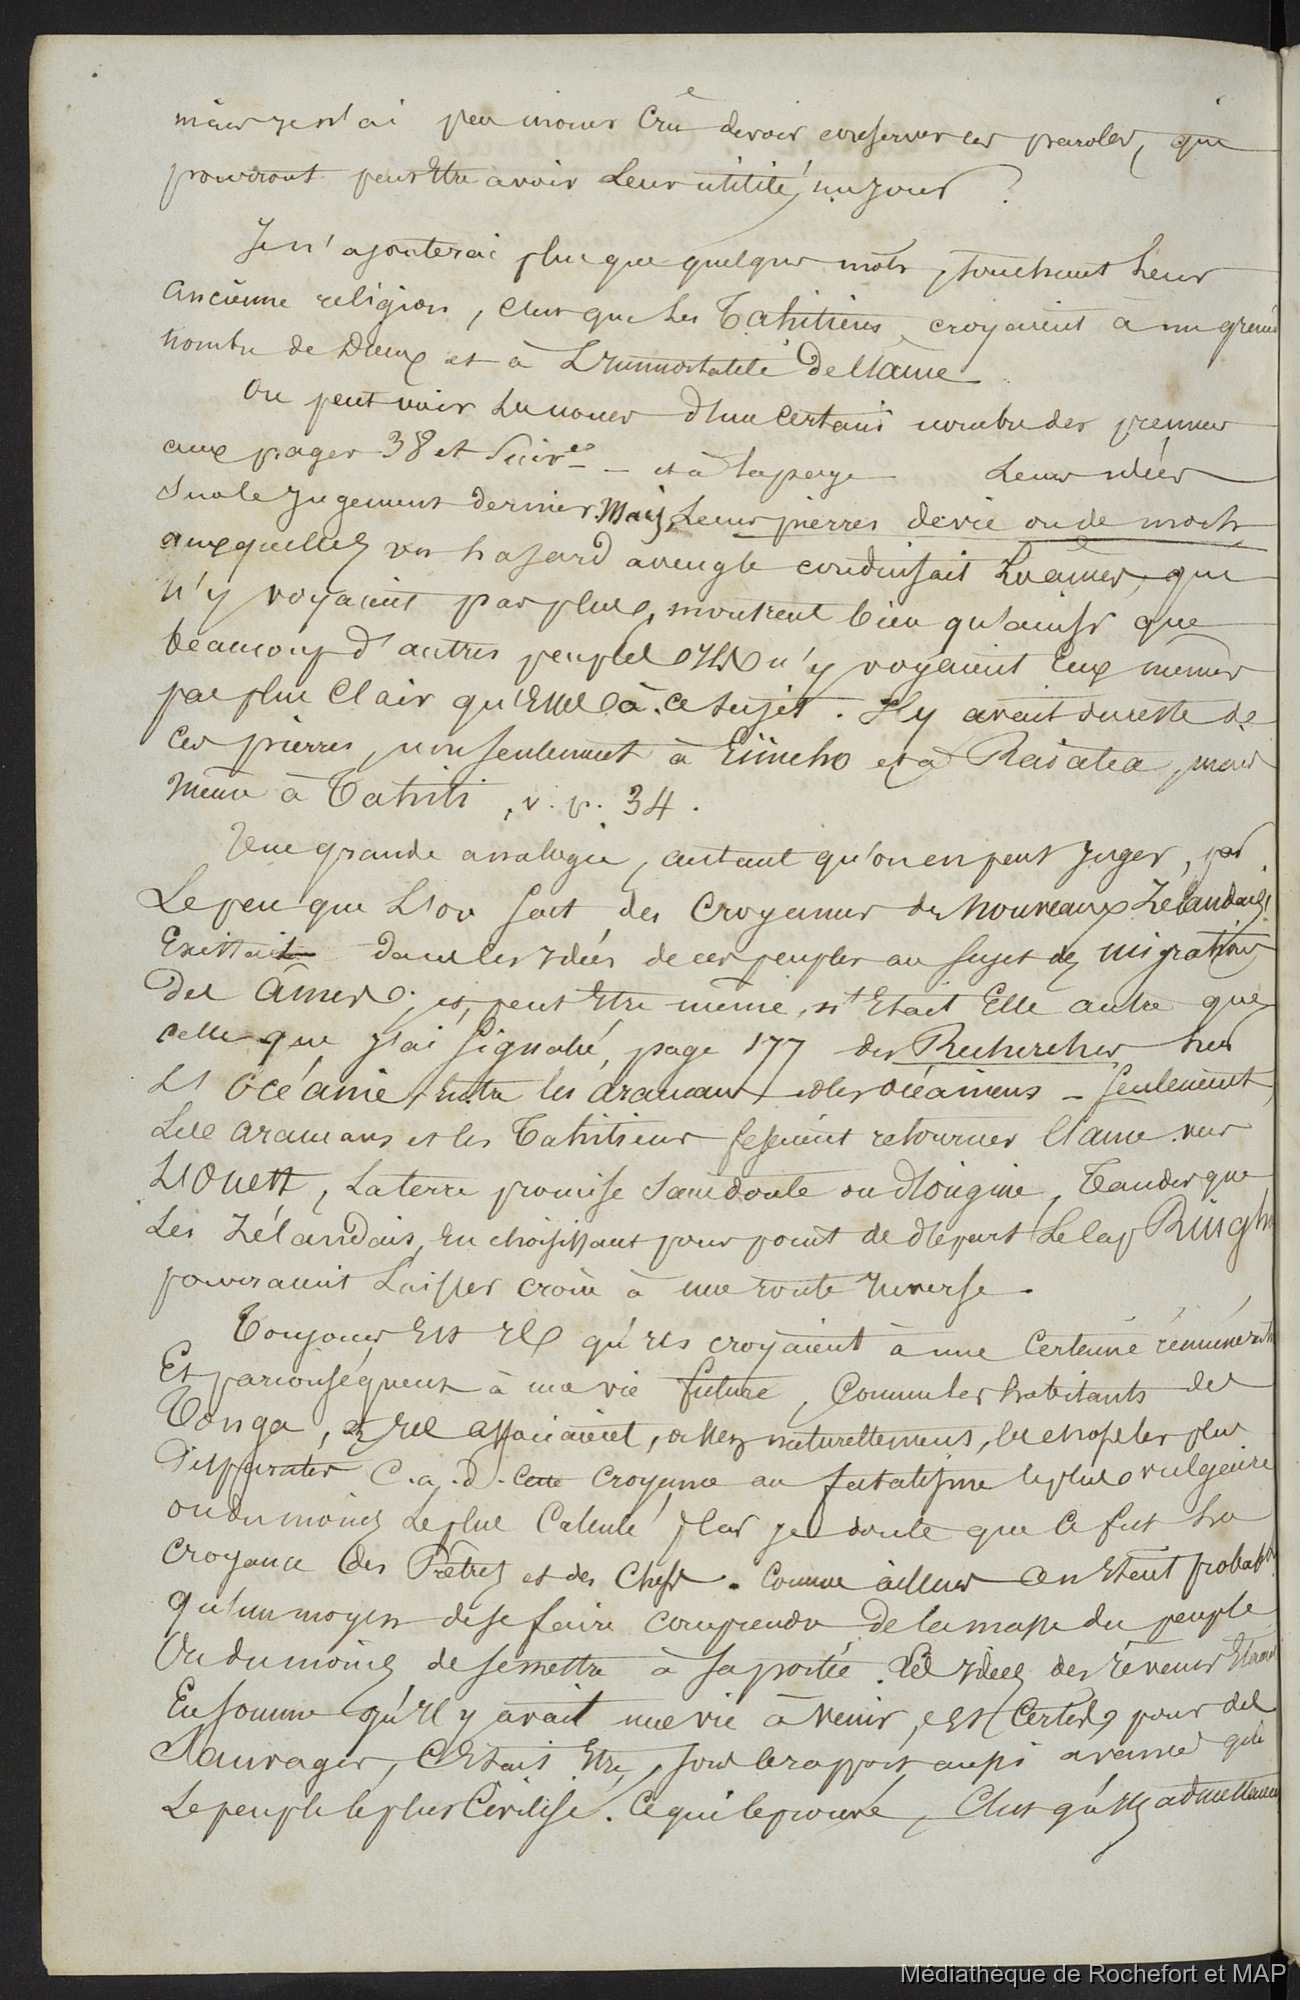 mais je n'ai pas moins crû devoir conserver ces paroles, qui
pourront peut être avoir leur utilité, un jour ?
Je n'ajouterai plus que quelques mots, touchant leur
ancienne religion, c'est que les Tahitiens croyaient à un grand
nombre de Dieux et à l'immortalité de l'âme
On peut voir les noms d'un certain nombre des premiers
aux pages 38 et suiv.es - et à la page leurs idées
sur le jugement dernier. Mais, leurs pierres de vie ou de mort,
auxquelles un hasard aveugle conduisait les âmes, qui
n'y voyaient pas plus, montrent bien qu'ainsi que
beaucoup d'autres peuples ils n'y voyaient eux mêmes
pas plus clair qu'elles à ce sujet. Il y avait du reste de
ces pierres, non seulement à Eimeho et à Raiatea, mais
même à Tahiti, v. p. 34.
Une grande analogie, autant qu'on en peut juger, par
le peu que l'on sait des croyances des nouveaux Zélandais,
existait dans les idées de ces peuples au sujet des migrations
des âmes ; et, peut être même, n'était elle autre que
celle que j'ai signalé, page 177 des Recherches sur
l'Océanie, entre les araucans et les océaniens - seulement,
les araucans et les Tahitiens fesaient retourner l'ame vers
l'Ouest, la terre promise sans doute ou d'origine, tandis que
les Zélandais, en choisissant pour point de départ le cap Reinga
pourraient laisser croire à une route inverse.
Toujours est il qu'ils croyaient à une certaine rémunération
et par conséquent à une vie future, comme les habitants des
Tonga, et ils associaient, assez naturellement, les choses les plus
disparates c.a.d. cette croyance au fatalisme le plus vulgaire
ou du moins le plus calculé, car je doute que ce fut la
croyance des Prêtres et des Chefs. Comme ailleurs ce n'était probabt
qu'un moyen de se faire comprendre de la masse du peuple
ou du moins de se mettre à sa portée. Ces idées des rêveurs étaient
en somme qu'il y avait une vie à venir, et, certes, pour des
sauvages, c'était être, sous le rapport aussi avancé que
le peuple le plus civilisé. Ce qui le prouve, c'est qu'ils admettaient
Médiathèque de Rochefort et MAP